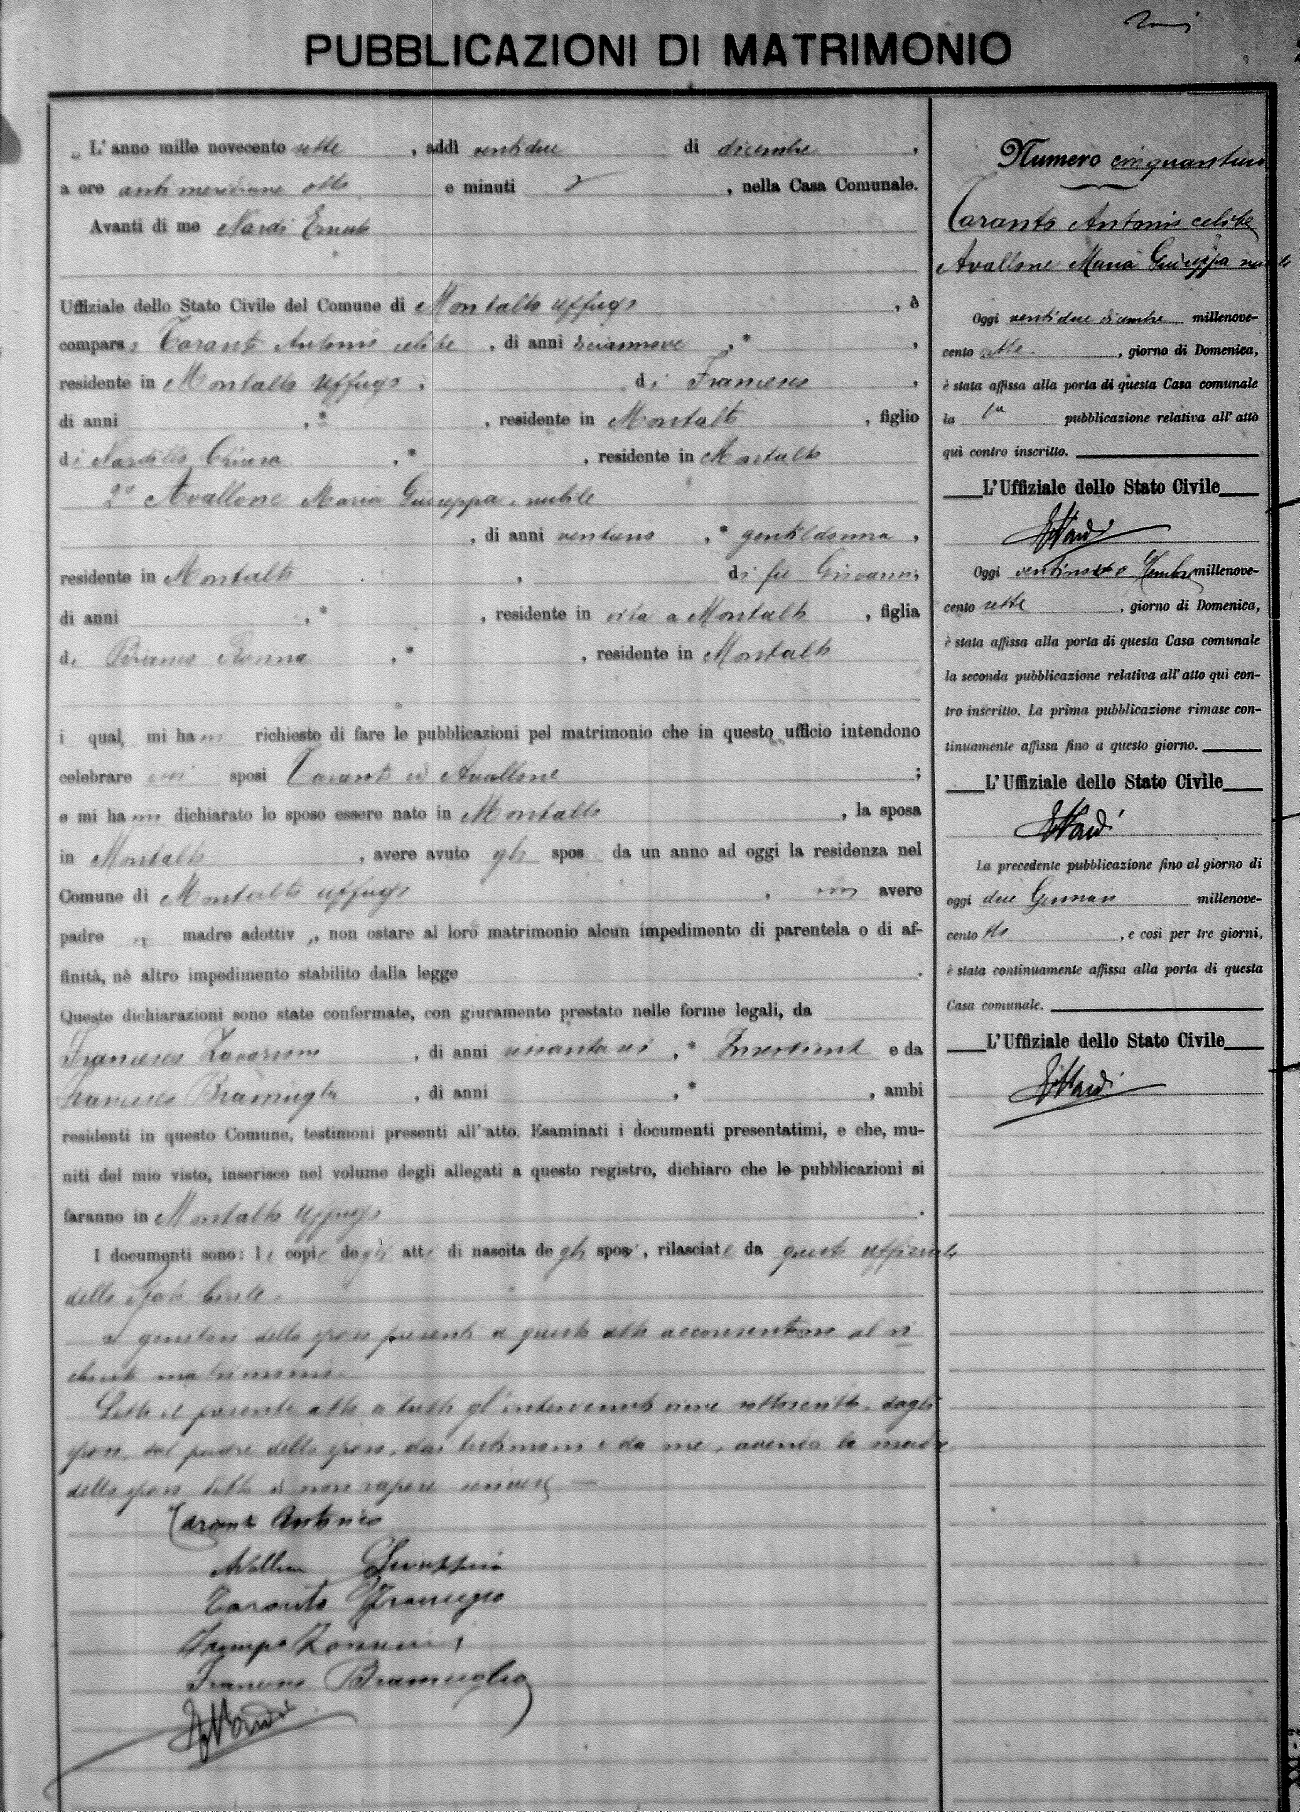 PUBBLICAZIONI DI MATRIMONIO
L'anno mille novecento sette, addì ventidue di dicembre,
a ore antimeridiane otto e minuti, nella Casa Comunale.
Avanti di me Nardi Ernesto
Uffiziale dello Stato Civile del Comune di Montalto Uffugo, è
compars Taranto Antonio celibe, di anni diciannove, "
residente in Montalto Uffugo, di Francesco,
di anni, ", residente in Montalto, figlio
di Chiara, ", residente in Montalto
2° Avallone Maria Giuseppa, nubile
, di anni ventuno, " gentildonna,
residente in Montalto, di fu Giovanni,
di anni, ", residente in vita a Montalto, figlia
di, ", residente in Montalto
i quali mi hanno richiesto di fare le pubblicazioni pel matrimonio che in questo ufficio intendono
celebrare essi sposi Taranto ed Avallone;
e mi hanno dichiarato lo sposo essere nato in Montalto, la sposa
in Montalto, avere avuto gli spos da un anno ad oggi la residenza nel
Comune di Montalto Uffugo, non avere
padre madre adottiv, non ostare al loro matrimonio alcun impedimento di parentela o di af-
finità, nè altro impedimento stabilito dalla legge.
Queste dichiarazioni sono state confermate, con giuramento prestato nelle forme legali, da
Francesco, di anni, " Inserviente e da
Francesco Bramuglia, di anni, ", ambi
residenti in questo Comune, testimoni presenti all'atto. Esaminati i documenti presentatimi, e che, mu-
niti del mio visto, inserisco nel volume degli allegati a questo registro, dichiaro che le pubblicazioni si
faranno in Montalto Uffugo.
I documenti sono: le copie degli atti di nascita degli sposi, rilasciate da questo uffiziale
dello Stato Civile.
I genitori dello sposo presenti a questo atto acconsentono al ri
chiesto matrimonio.
Letto il presente atto a tutti gl'intervenuti viene sottoscritto dagli
sposi, dal padre dello sposo, dai testimoni e da me, avendo la madre
dello sposo detto di non sapere scrivere
Taranto Antonio
Avallone Giuseppina
Taranto Francesco
Francesco Bramuglia
E. Nardi
Numero cinquantuno
Taranto Antonio celibe
Avallone Maria Giuseppa nubile
Oggi ventidue dicembre millenove-
cento sette, giorno di Domenica,
è stata affissa alla porta di questa Casa comunale
la 1a pubblicazione relativa all'atto
qui contro inscritto.
L'Uffiziale dello Stato Civile
E. Nardi
Oggi ventinove Xembre millenove-
cento sette, giorno di Domenica,
è stata affissa alla porta di questa Casa comunale
la seconda pubblicazione relativa all'atto qui con-
tro inscritto. La prima pubblicazione rimase con-
tinuamente affissa fino a questo giorno.
L'Uffiziale dello Stato Civile
E. Nardi
La precedente pubblicazione fino al giorno di
oggi due Gennaio millenove-
cento otto, e così per tre giorni,
è stata continuamente affissa alla porta di questa
Casa comunale.
L'Uffiziale dello Stato Civile
E. Nardi